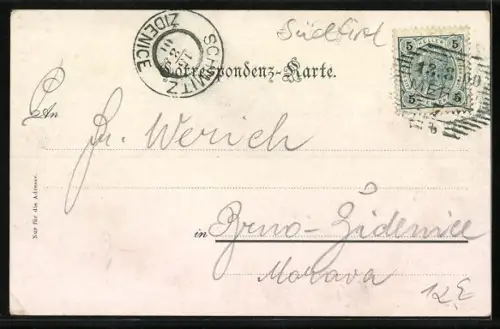 Südtirol
SCHIMITZ
ZIDENICE
5 5
5 5
Correspondenz-Karte.
An
Werich
in Brno-Židenice
Morava
12E
Nur für die Adresse.